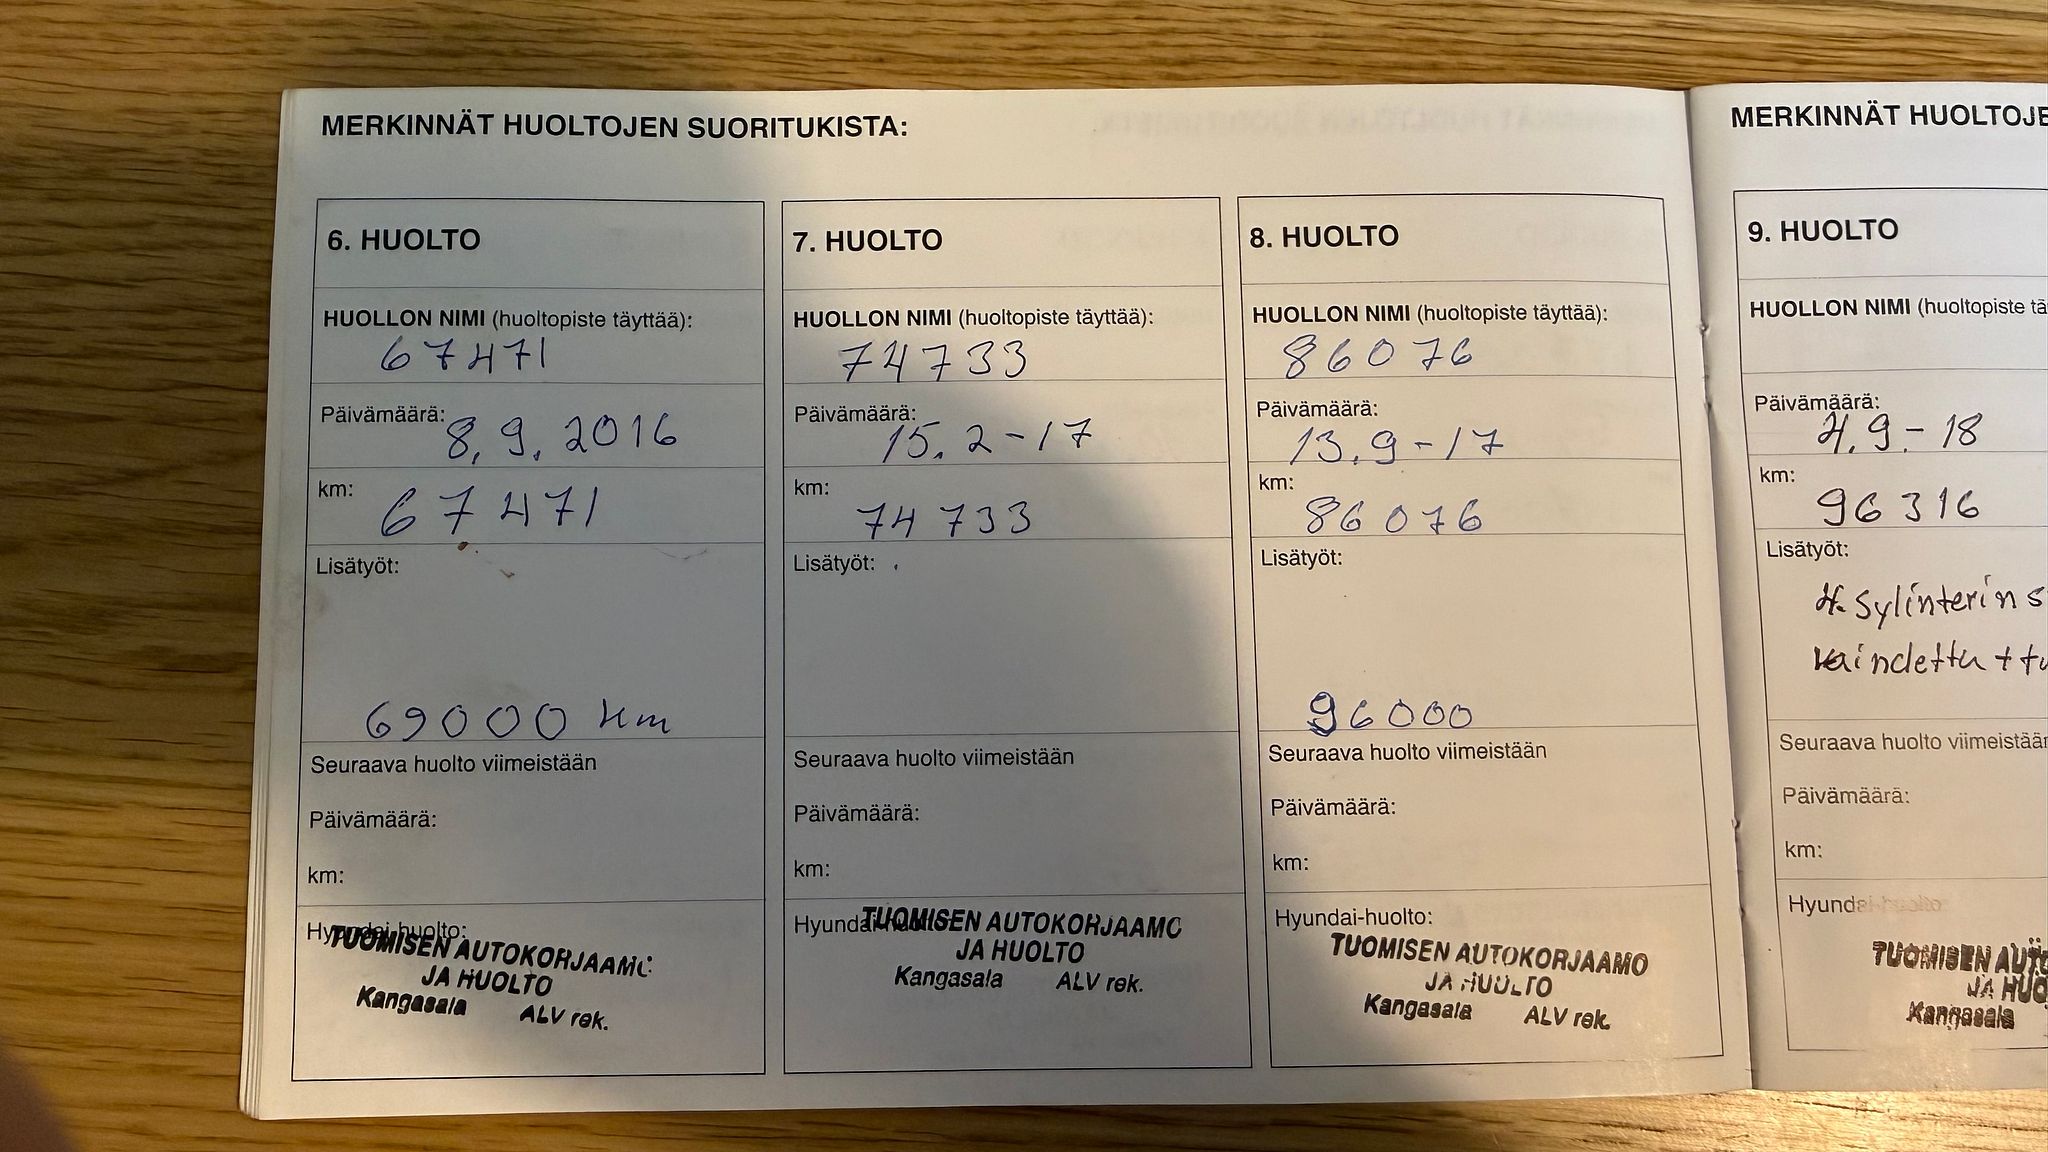 MERKINNÄT HUOLTOJEN SUORITUKISTA:
6. HUOLTO
HUOLLON NIMI (huoltopiste täyttää):
67471
Päivämäärä: 8.9.2016
km: 67471
Lisätyöt:
69000 km
Seuraava huolto viimeistään
Päivämäärä:
km:
Hyundai-huolto:
TUOMISEN AUTOKORJAAMO
JA HUOLTO
Kangasala ALV rek.
7. HUOLTO
HUOLLON NIMI (huoltopiste täyttää):
74733
Päivämäärä: 15.2-17
km: 74733
Lisätyöt:
Seuraava huolto viimeistään
Päivämäärä:
km:
Hyundai-huolto:
TUOMISEN AUTOKORJAAMO
JA HUOLTO
Kangasala ALV rek.
8. HUOLTO
HUOLLON NIMI (huoltopiste täyttää):
86076
Päivämäärä: 13.9-17
km: 86076
Lisätyöt:
96000
Seuraava huolto viimeistään
Päivämäärä:
km:
Hyundai-huolto:
TUOMISEN AUTOKORJAAMO
JA HUOLTO
Kangasala ALV rek.
MERKINNÄT HUOLTOJE
9. HUOLTO
HUOLLON NIMI (huoltopiste tä
Päivämäärä: 4.9.-18
km: 96316
Lisätyöt:
4. Sylinterin s
Seuraava huolto viimeistään
Päivämäärä:
km:
Hyundai-huolto:
TUOMISEN AUTO
JA HUO
Kangasala